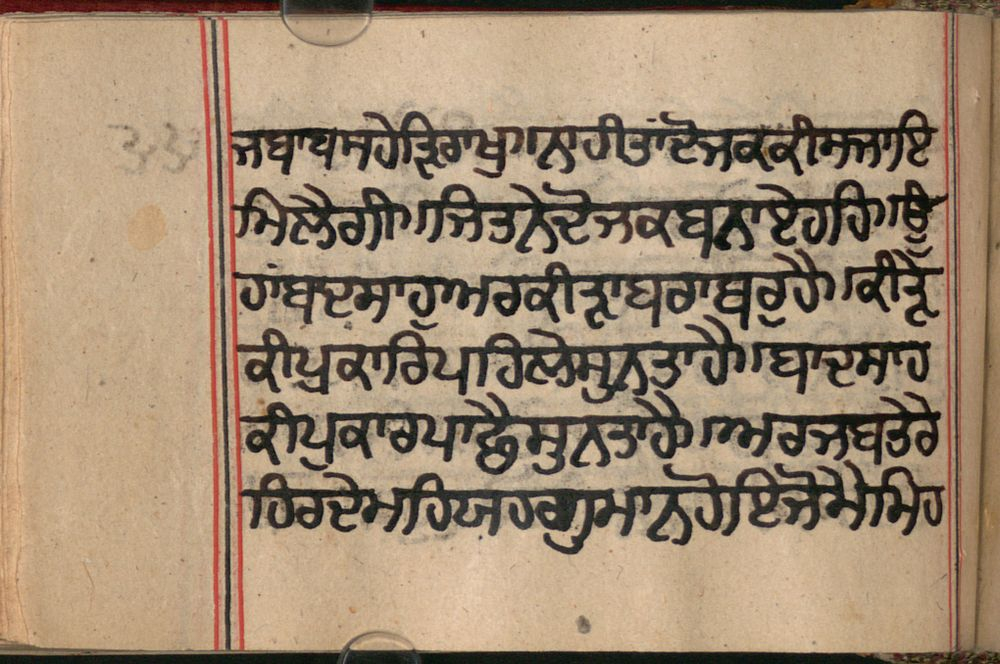 ਜਬਾਬਸਹੇਤ੍ਰਿਰਾਖੁ॥ਨਾਹੀਤਾਂਦੋਜਕਕੀਸਜਾਇ
ਮਿਲੈਗੀ॥ਜਿਤਨੇਦੋਜਕਬਨਾਏਹਹਿ॥ਊ
ਹਾਂਬਦਸਾਹੁ॥ਅਰਕੀਤ੍ਰਾਬਰਾਬਰੁਹੈ॥ਕੀਤ੍ਰੈ
ਕੀਪੁਕਾਰਿਪਹਿਲੇਸੁਨਤਾਹੈ॥ਬਾਦਸਾਹ
ਕੀਪੁਕਾਰਪਾਛੈਸੁਨਤਾਹੈ॥ਅਰਜਬਤੇਰੇ
ਹਿਰਦੇਮਹਿਯਹਗੁਮਾਨਹੋਇਜੋਮੈਮਿਹ